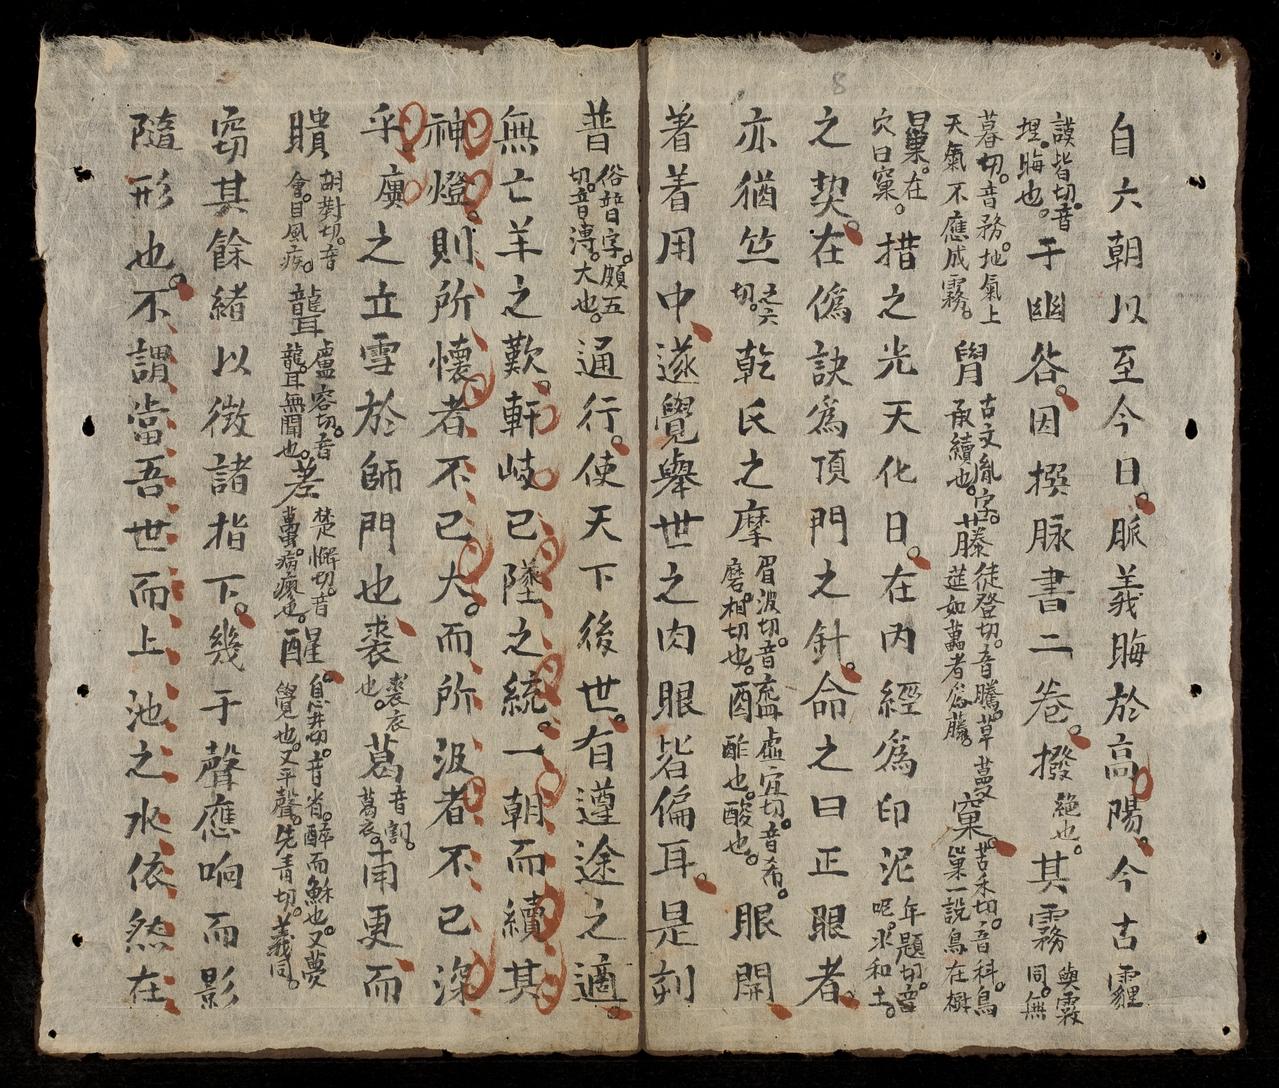 自六朝以至今日。脈義晦於高陽。今古霾
謨皆切。音埋。晦也。于幽谷。因撰脉書二卷。撥絶也。其霧與霚同。無
暮切。音務。地氣上天氣不應成霧。胷古文胤字。承續也。藤徒登切。音騰。草蔓莚如萬者爲藤。窠苦禾切。音科。鳥巢一説鳥在樹
曰巢。在穴曰窠。措之光天化日。在内經爲印泥年題切。音呢。水和土。
之契。在僞訣爲頂門之針。命之曰正眼者。
亦猶竺之六切。乾氏之摩眉波切。音磨。相切也。醯虚宜切。音希。酢也。酸也。眼開
著着用中。遂覺舉世之肉眼皆偏耳。是刻
普俗暜字。頗五切。音溥。大也。通行。使天下後世。有遵途之適。
無亡羊之歎。軒岐已墜之統。一朝而續其
神燈。則所懷者不已大。而所汲者不已深
乎。廣之立雪於師門也。裘裘衣也。葛音割。葛衣。南更而
聵胡對切。音會。目風疾。聾盧容切。音龍。耳無聞也。差楚懈切。音萬。病瘳也。醒息井切。音省。醉而穌也。又夢覺也。又平聲。先青切。義同。
窃其餘緒以徴諸指下。幾于聲應响而影
隨形也。不謂當吾世而上池之水依然在